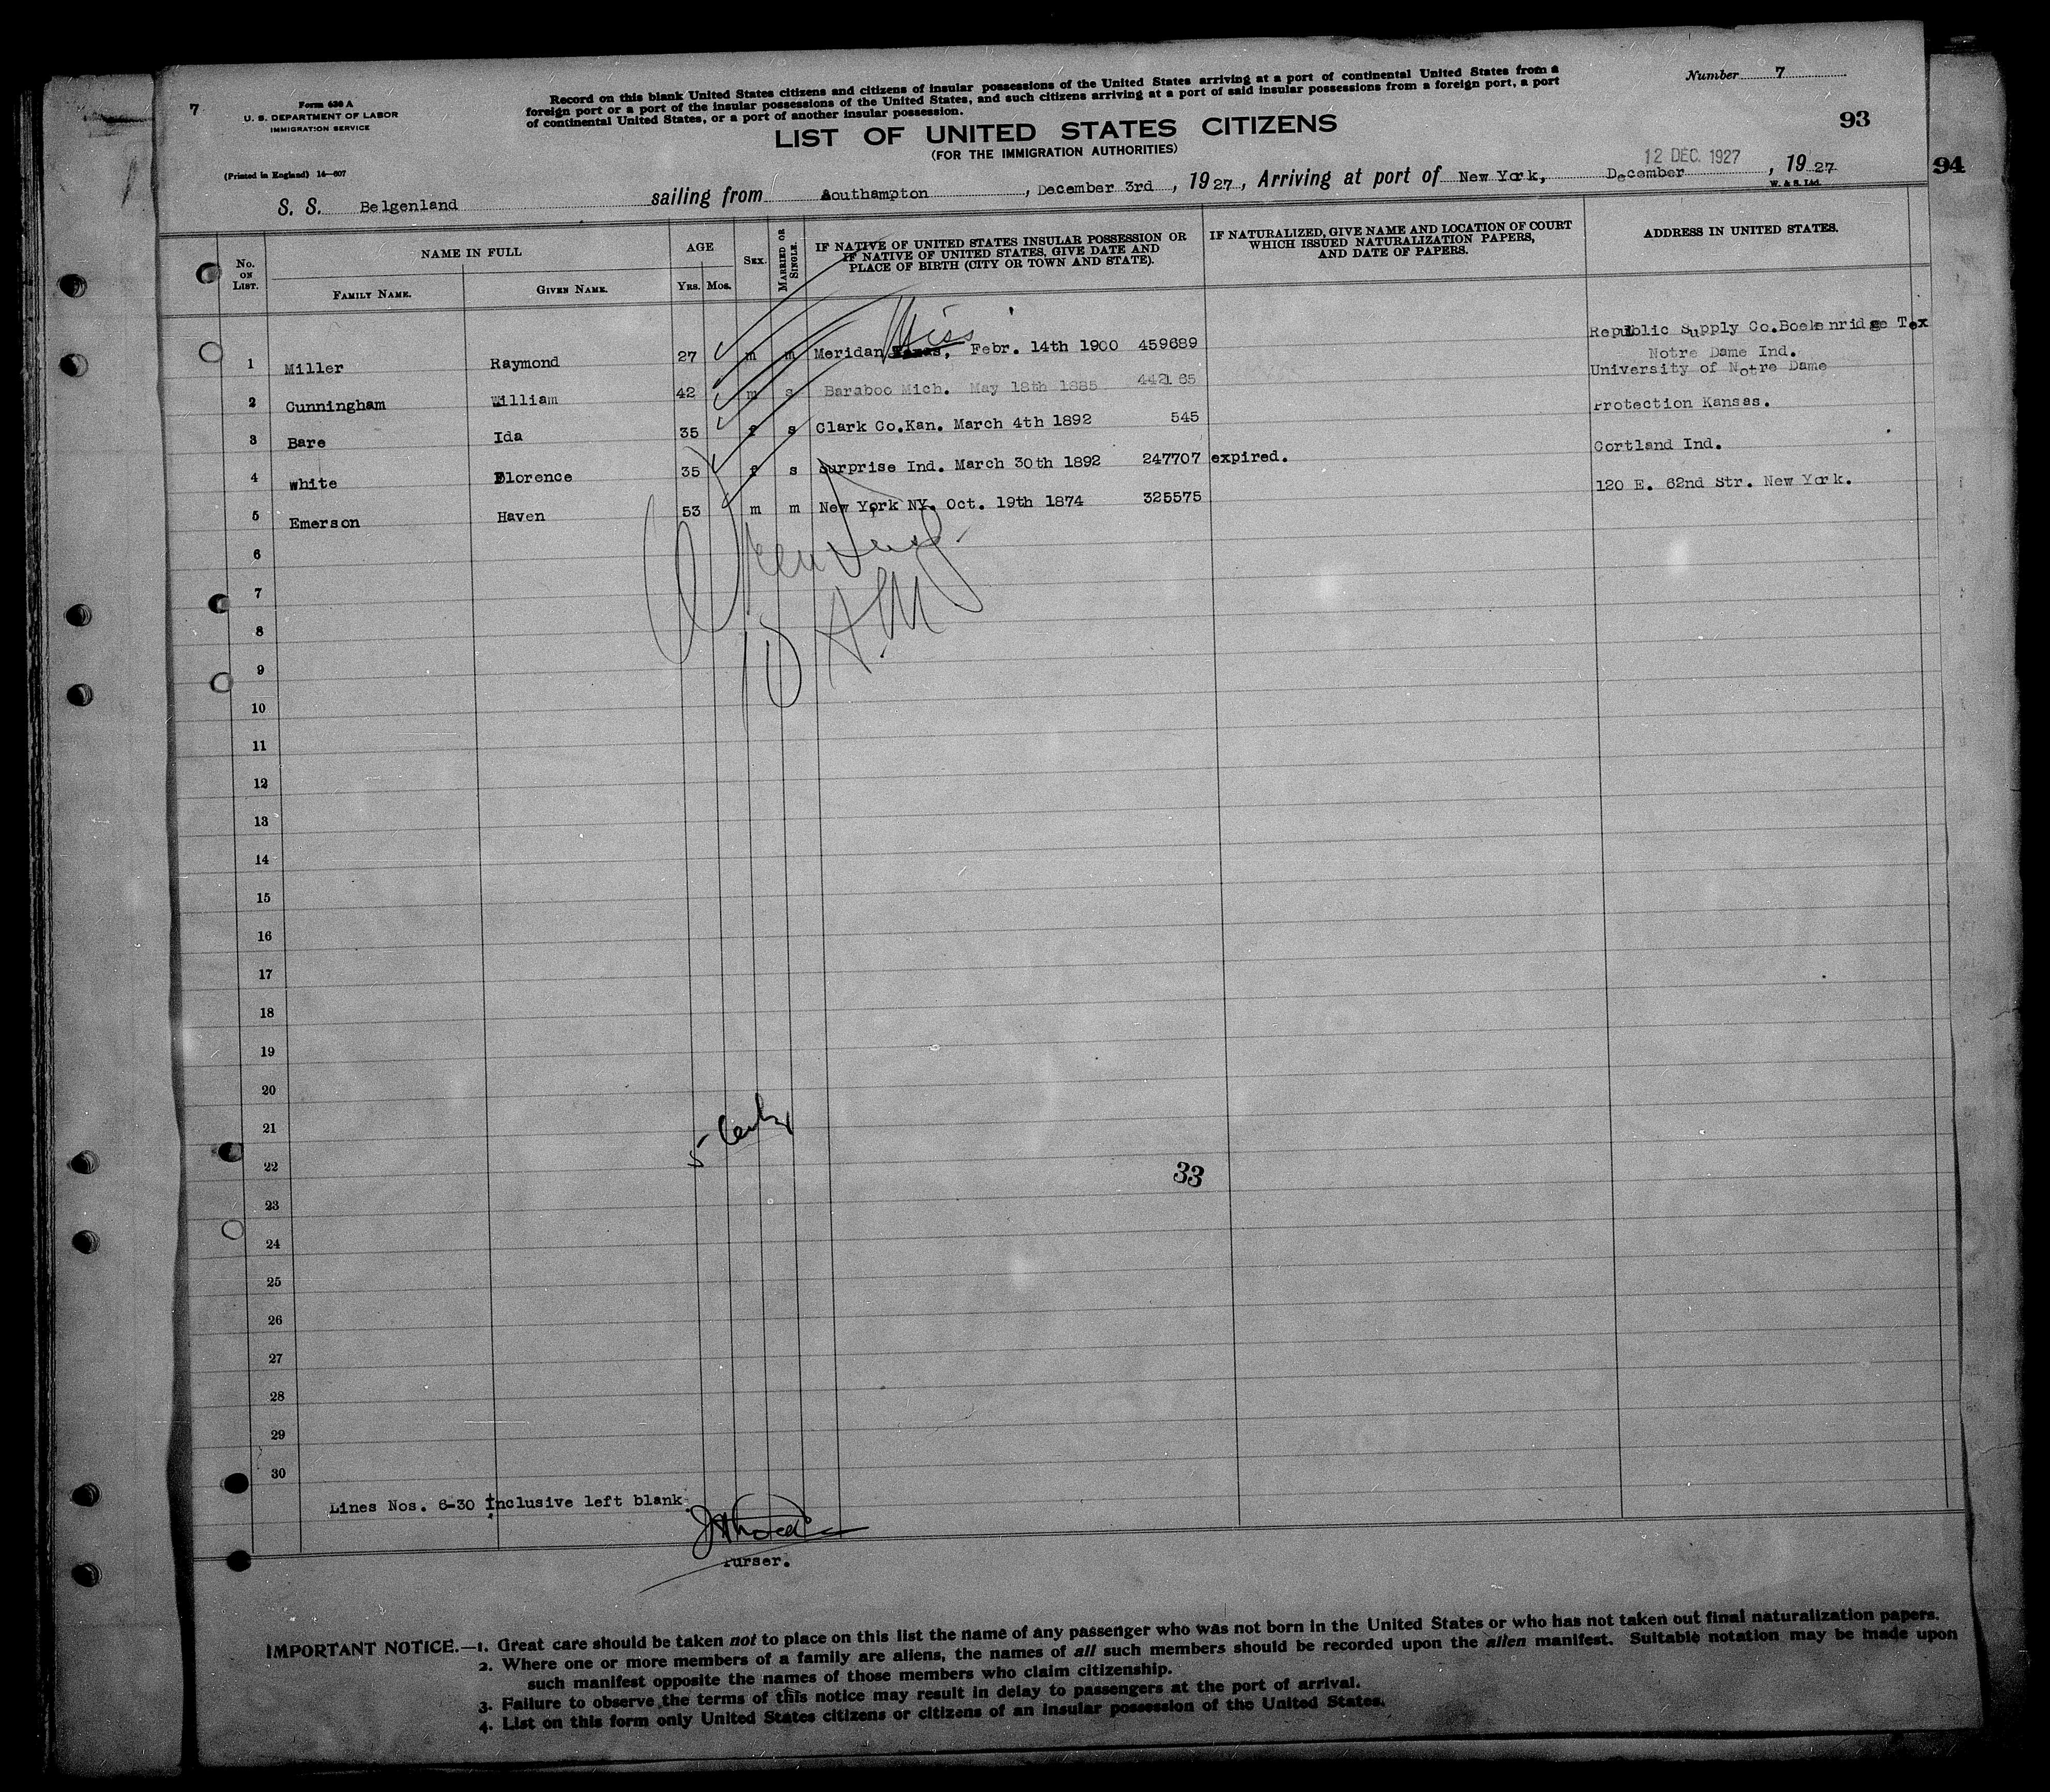 7
Form 630 A
U. S. DEPARTMENT OF LABOR
IMMIGRATION SERVICE
(Printed in England) 14—607
Record on this blank United States citizens and citizens of insular possessions of the United States arriving at a port of continental United States from a
foreign port or a port of the insular possessions of the United States, and such citizens arriving at a port of said insular possessions from a foreign port, a port
of continental United States, or a port of another insular possession.
Number 7
93
94
LIST OF UNITED STATES CITIZENS
(FOR THE IMMIGRATION AUTHORITIES)
12 DEC. 1927
S. S. Belgenland sailing from Southampton, December 3rd, 1927, Arriving at port of New York, December, 1927
W. & S. Ltd.
No. ON LIST. NAME IN FULL AGE SEX. MARRIED OR SINGLE. IF NATIVE OF UNITED STATES INSULAR POSSESSION OR IF NATIVE OF UNITED STATES, GIVE DATE AND PLACE OF BIRTH (CITY OR TOWN AND STATE). IF NATURALIZED, GIVE NAME AND LOCATION OF COURT WHICH ISSUED NATURALIZATION PAPERS, AND DATE OF PAPERS. ADDRESS IN UNITED STATES.
FAMILY NAME. GIVEN NAME. YRS. MOS.
Miss
Republic Supply Co.Boekenridge Tex
1 Miller Raymond 27 m m Meridan Texas, Febr. 14th 1900 459689
Notre Dame Ind.
University of Notre Dame
2 Cunningham William 42 m s Baraboo Mich. May 18th 1885 442165
Protection Kansas.
3 Bare Ida 35 f s Clark Co.Kan. March 4th 1892 545
Cortland Ind.
4 White Florence 35 f s Surprise Ind. March 30th 1892 247707 expired.
120 E. 62nd Str. New York.
5 Emerson Haven 53 m m New York NY. Oct. 19th 1874 325575
6
7
10 A.M
8
9
10
11
12
13
14
15
16
17
18
19
20
21
5
22
33
23
24
25
26
27
28
29
30
Lines Nos. 6-30 inclusive left blank.
Purser.
IMPORTANT NOTICE.—1. Great care should be taken not to place on this list the name of any passenger who was not born in the United States or who has not taken out final naturalization papers.
2. Where one or more members of a family are aliens, the names of all such members should be recorded upon the alien manifest. Suitable notation may be made upon
such manifest opposite the names of those members who claim citizenship.
3. Failure to observe the terms of this notice may result in delay to passengers at the port of arrival.
4. List on this form only United States citizens or citizens of an insular possession of the United States.